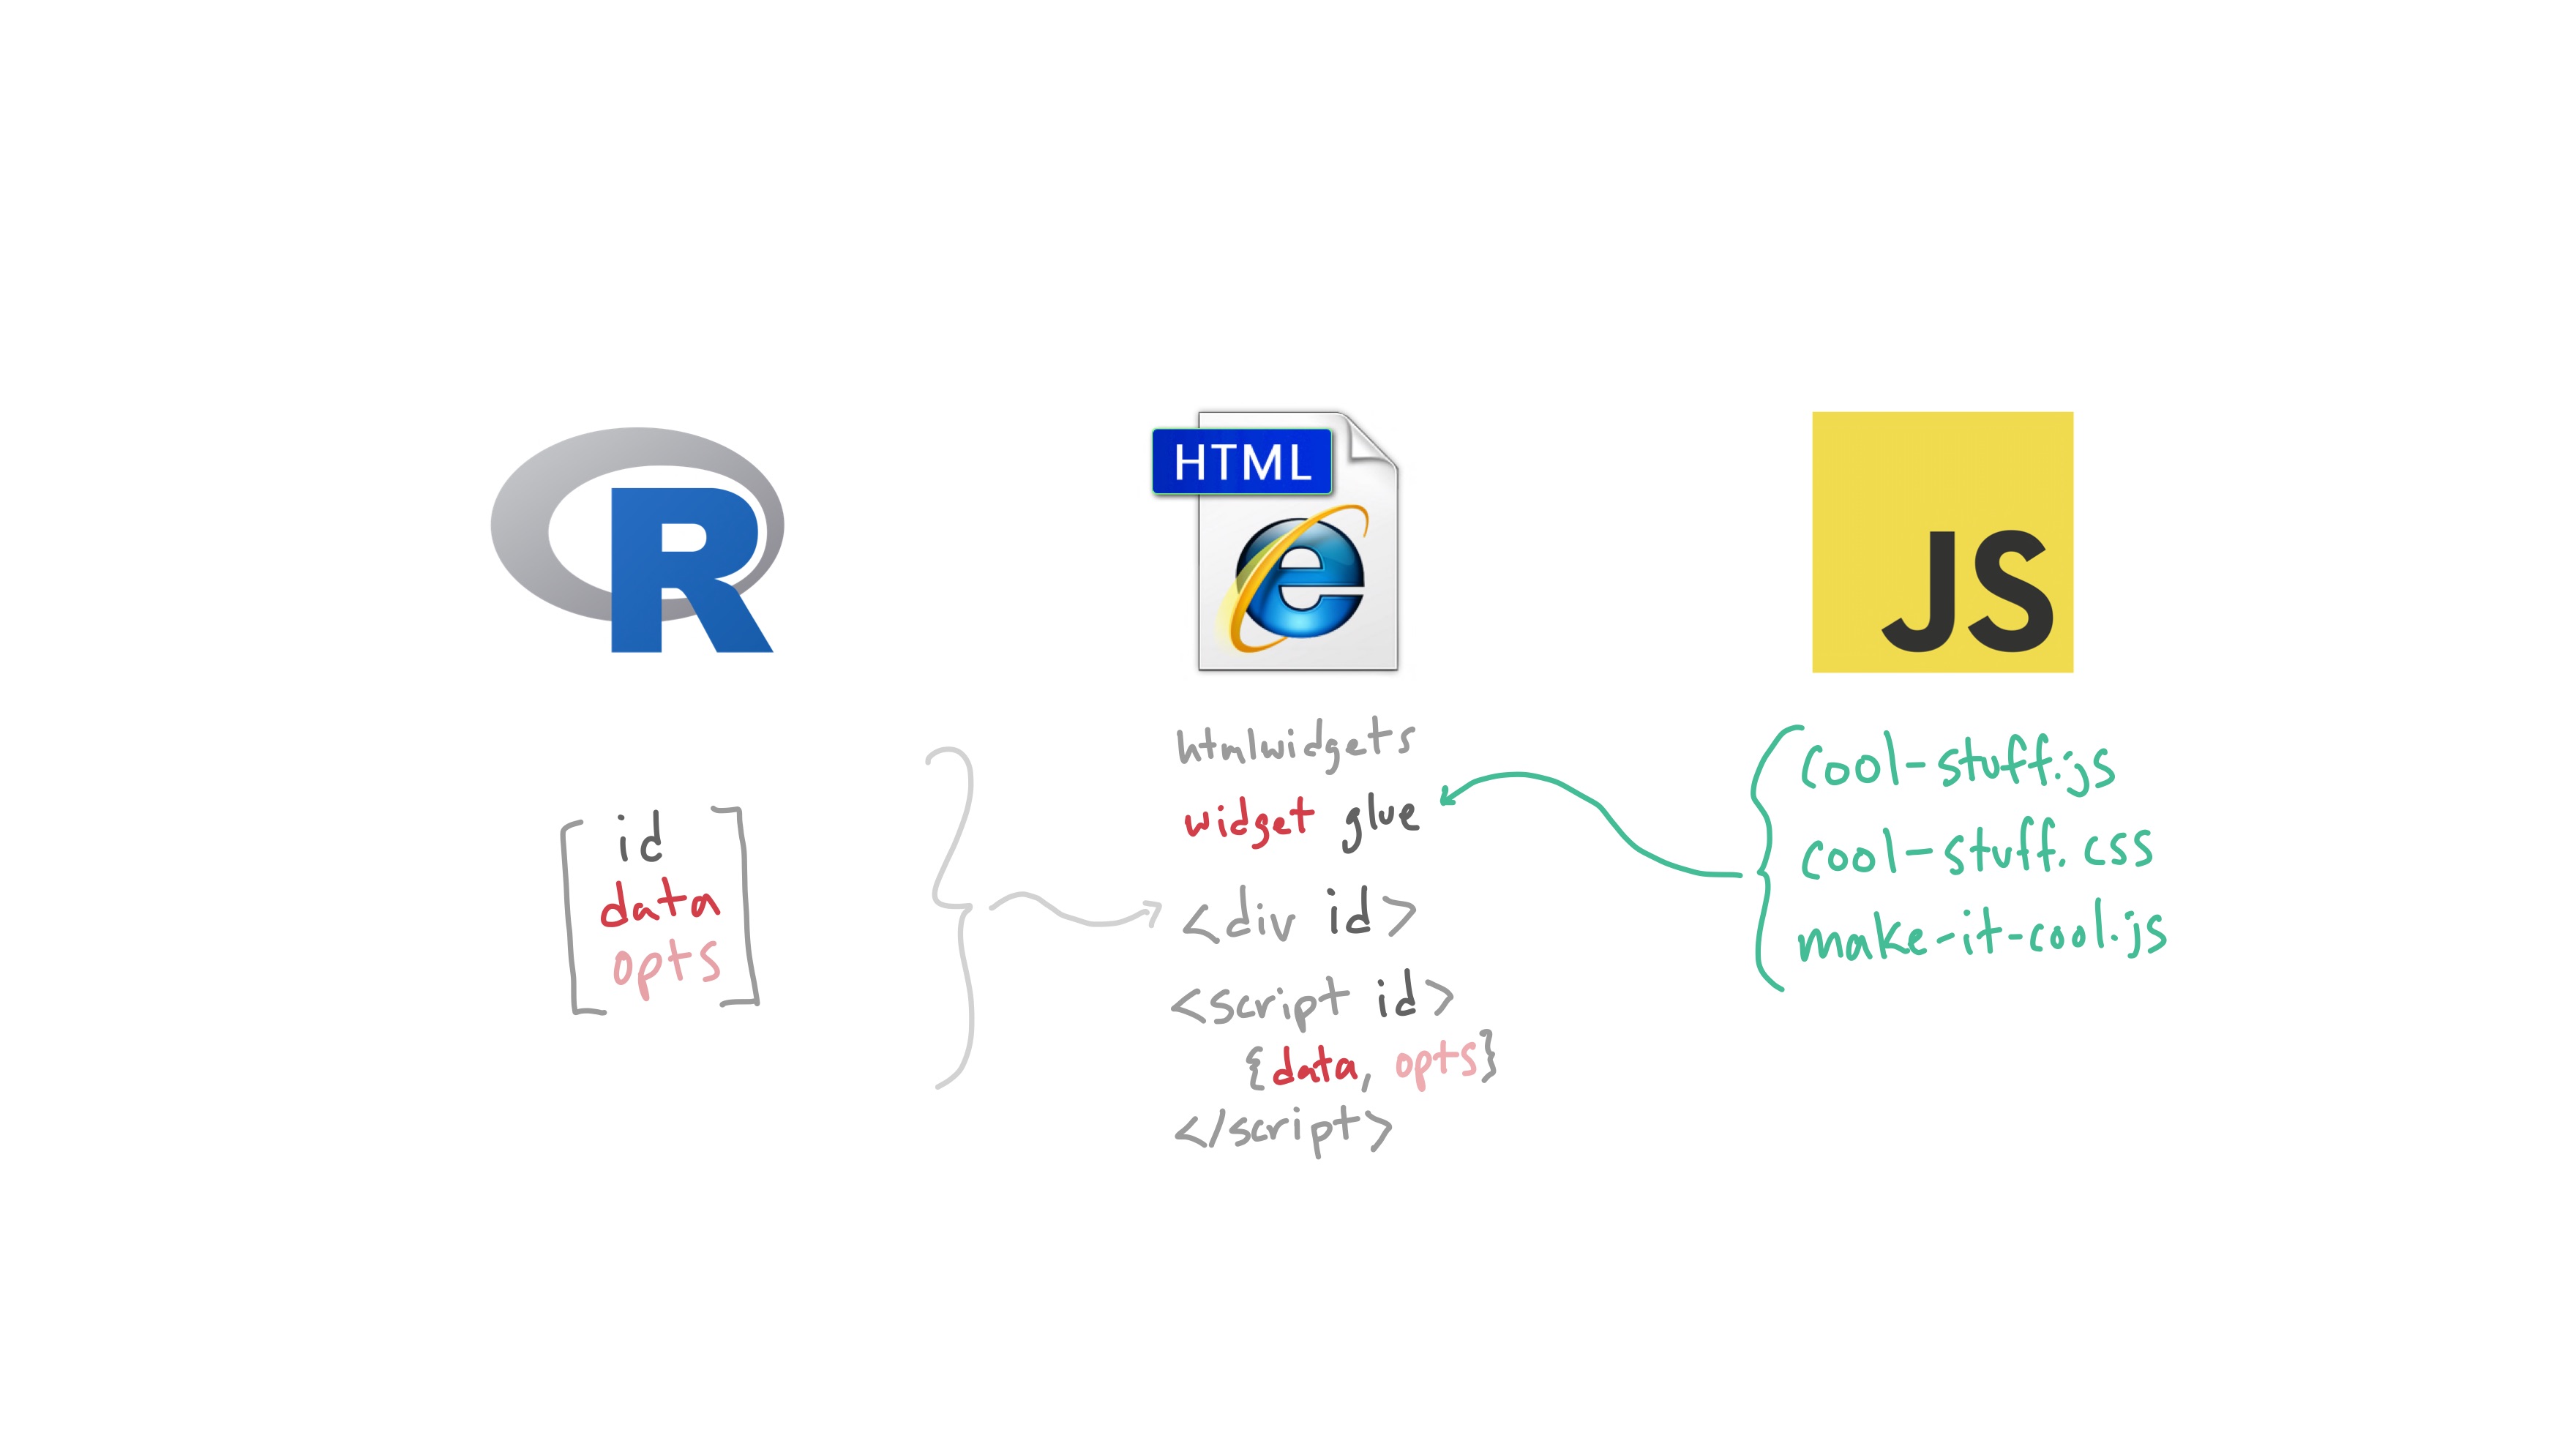 R
HTML
e
JS
id
data
opts
htmlwidgets
widget glue
<div id>
<script id>
{data, opts}
</script>
cool-stuff.js
cool-stuff.css
make-it-cool.js